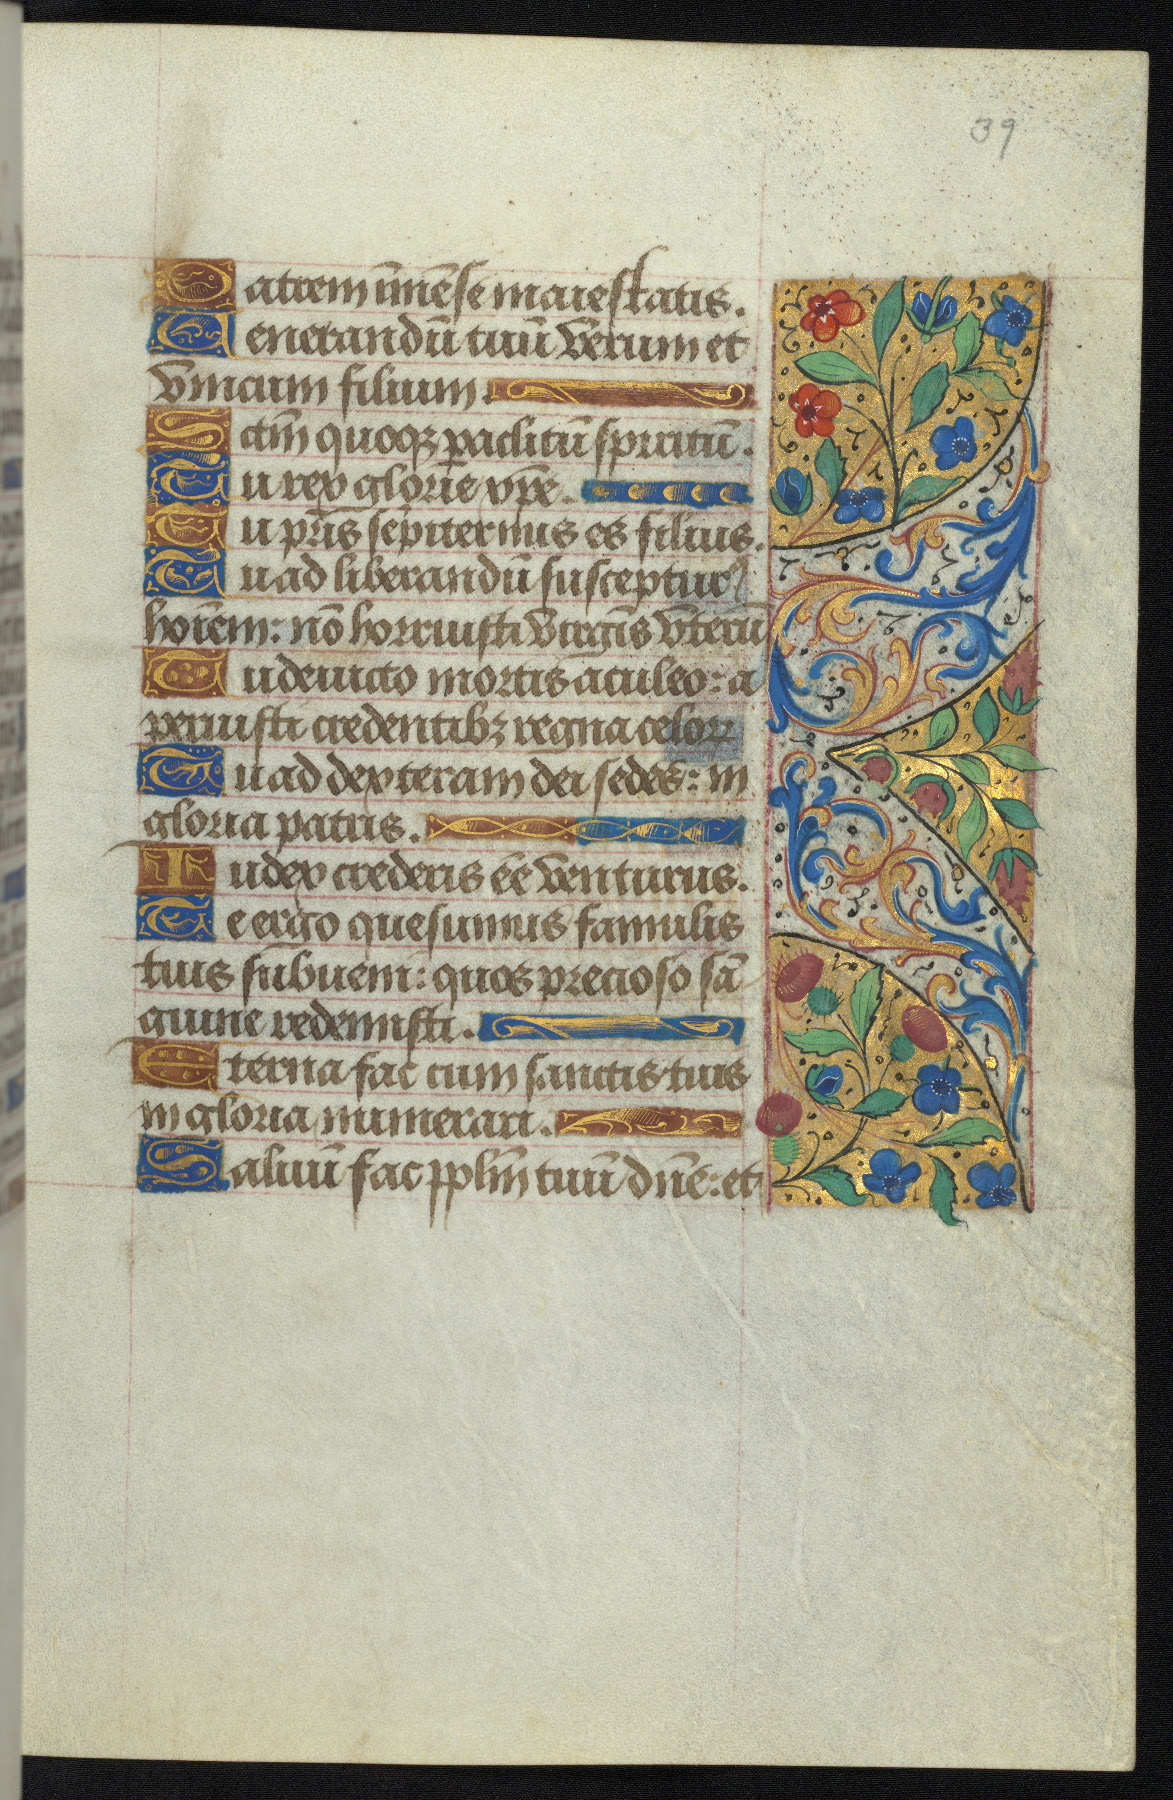 39
Patrem im̄ēse maiestatis.
Venerandū tuū verum et
vnicum filium.
Sctm̄ quoqꝫ paclitū spiritū.
Tu rex glorie xp̄e.
Tu pr̄is sempiternus es filius.
Tu ad liberandū suscepturꝰ
hoīem: nō horruisti virgīs vterū
Tu deuicto mortis aculeo: a
peruisti credentibꝫ regna celoꝝ
Tu ad dexteram dei sedes: in
gloria patris.
Iudex crederis eē venturus.
Te ergo quesumus famulis
tuis subueni: quos precioso sā
guine redemisti.
Eterna fac cum sanctis tuis
in gloria numerari.
Saluū fac pplm̄ tuū dn̄e: et